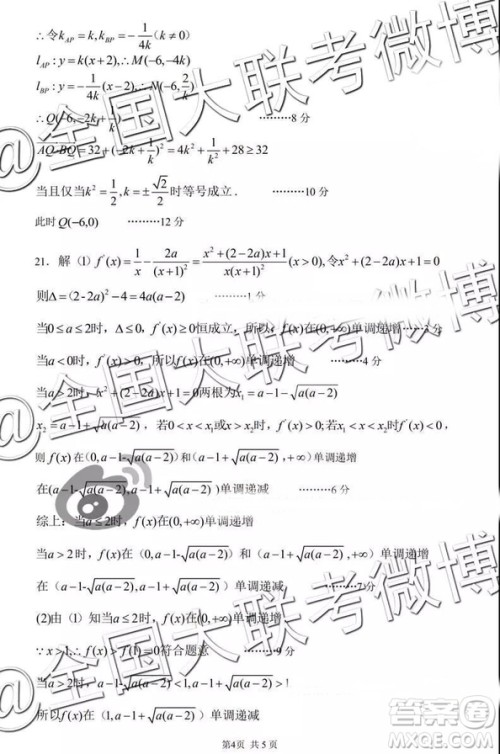 ∴令k_AP = k, k_BP = -1/4k (k ≠ 0)
l_AP : y = k(x+2), ∴ M(-6, -4k)
l_BP : y = -1/4k (x-2), ∴ N(-6, 2/k)
∴ Q(-6, -2k + 1/k) ………8 分
AQ·BQ = 32 + (-2k + 1/k)² = 4k² + 1/k² + 28 ≥ 32
当且仅当k² = 1/2, k = ±√2/2 时等号成立. ………10 分
此时Q(-6,0) ………12 分
21. 解 (1) f'(x) = 1/x - 2a/(x+1)² = x² + (2-2a)x + 1 / x(x+1)² (x > 0), 令x² + (2-2a)x + 1 = 0
则Δ = (2-2a)² - 4 = 4a(a-2) ………1 分
当0 ≤ a ≤ 2时, Δ ≤ 0, f'(x) ≥ 0恒成立, 所以f(x)在(0,+∞)单调递增
当a < 0时, f'(x) > 0, 所以f(x)在(0,+∞)单调递增 ………4 分
当a > 2时, x² + (2-2a)x + 1 = 0两根为x₁ = a - 1 - √a(a-2),
x₂ = a - 1 + √a(a-2), 若0 < x < x₁或x > x₂时f'(x) > 0; 若x₁ < x < x₂时f'(x) < 0,
则f(x)在(0, a-1-√a(a-2))和(a-1+√a(a-2), +∞)单调递增
在(a-1-√a(a-2), a-1+√a(a-2))单调递减 ………6 分
综上: 当a ≤ 2时, f(x)在(0,+∞)单调递增
当a > 2时, f(x)在(0, a-1-√a(a-2))和(a-1+√a(a-2), +∞)单调递增
在(a-1-√a(a-2), a-1+√a(a-2))单调递减 ………7分
(2)由(1)知当a ≤ 2时, f(x)在(0,+∞)单调递增
∵ x > 1, ∴ f(x) > f(1) = 0符合题意 ………9 分
当a > 2时, a-1-√a(a-2) < 1, a-1+√a(a-2) > 1
所以f(x)在(1, a-1+√a(a-2))单调递减
第4页 共5页
@全国大联考微博
@全国大联考微博
@全国大联考微博
答案圈
MXQE.COM